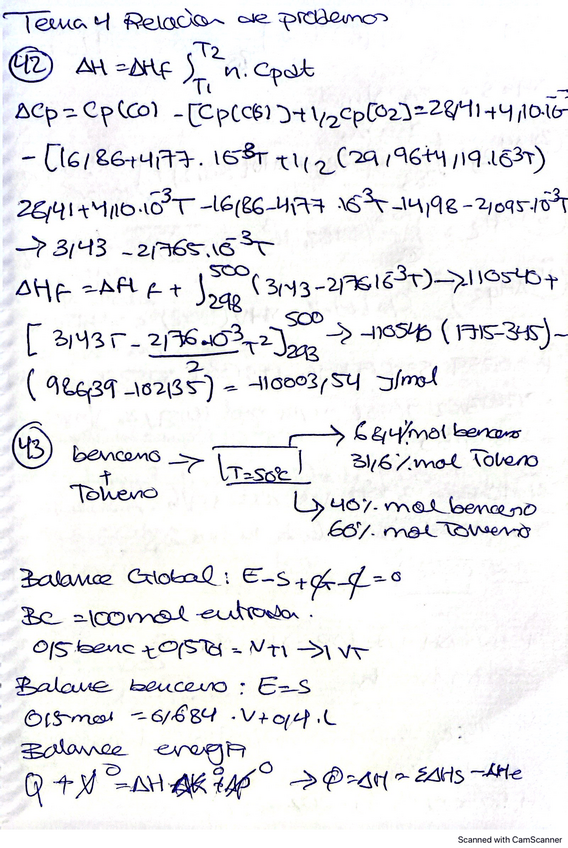 Tema 4 Relacion de problemas
42 ΔH = ΔHf ∫T1 T2 n. Cpdt
ΔCp = Cp(CO) - [Cp(C(s)) + 1/2 Cp[O2] = 28,41 + 4,10.10^-3
- [16,86 + 4,77. 10^-3T + 1/2 (29,96 + 4,19.10^-3T)
28,41 + 4,10.10^-3T - 16,86 - 4,77 10^-3T - 14,98 - 2,095.10^-3T
→ 3,43 - 2,765.10^-3T
ΔHf = ΔHf + ∫298 500 (3,43 - 2,76 10^-3T) → 110540 +
[3,43T - 2,76.10^-3/2 T^2] 500 293 → -110540 (1715 - 345) -
(986,39 - 102,35) = -110003,54 J/mol
43 benceno + Tolueno → T=50ºC → 68,4% mol benceno
31,6% mol Tolueno
→ 40% mol benceno
60% mol Tolueno
Balance Global: E-S+G-C=0
BC = 100 mol entrada.
0,5 benc + 0,5 Tol = V+1 → 1 VT
Balance benceno: E=S
0,5 mol = 0,684 . V + 0,4 . L
Balance energía
Q + W^0 = ΔH + ΔK^0 + ΔP^0 → Q = ΔH = ΣΔHs - ΔHe
Scanned with CamScanner